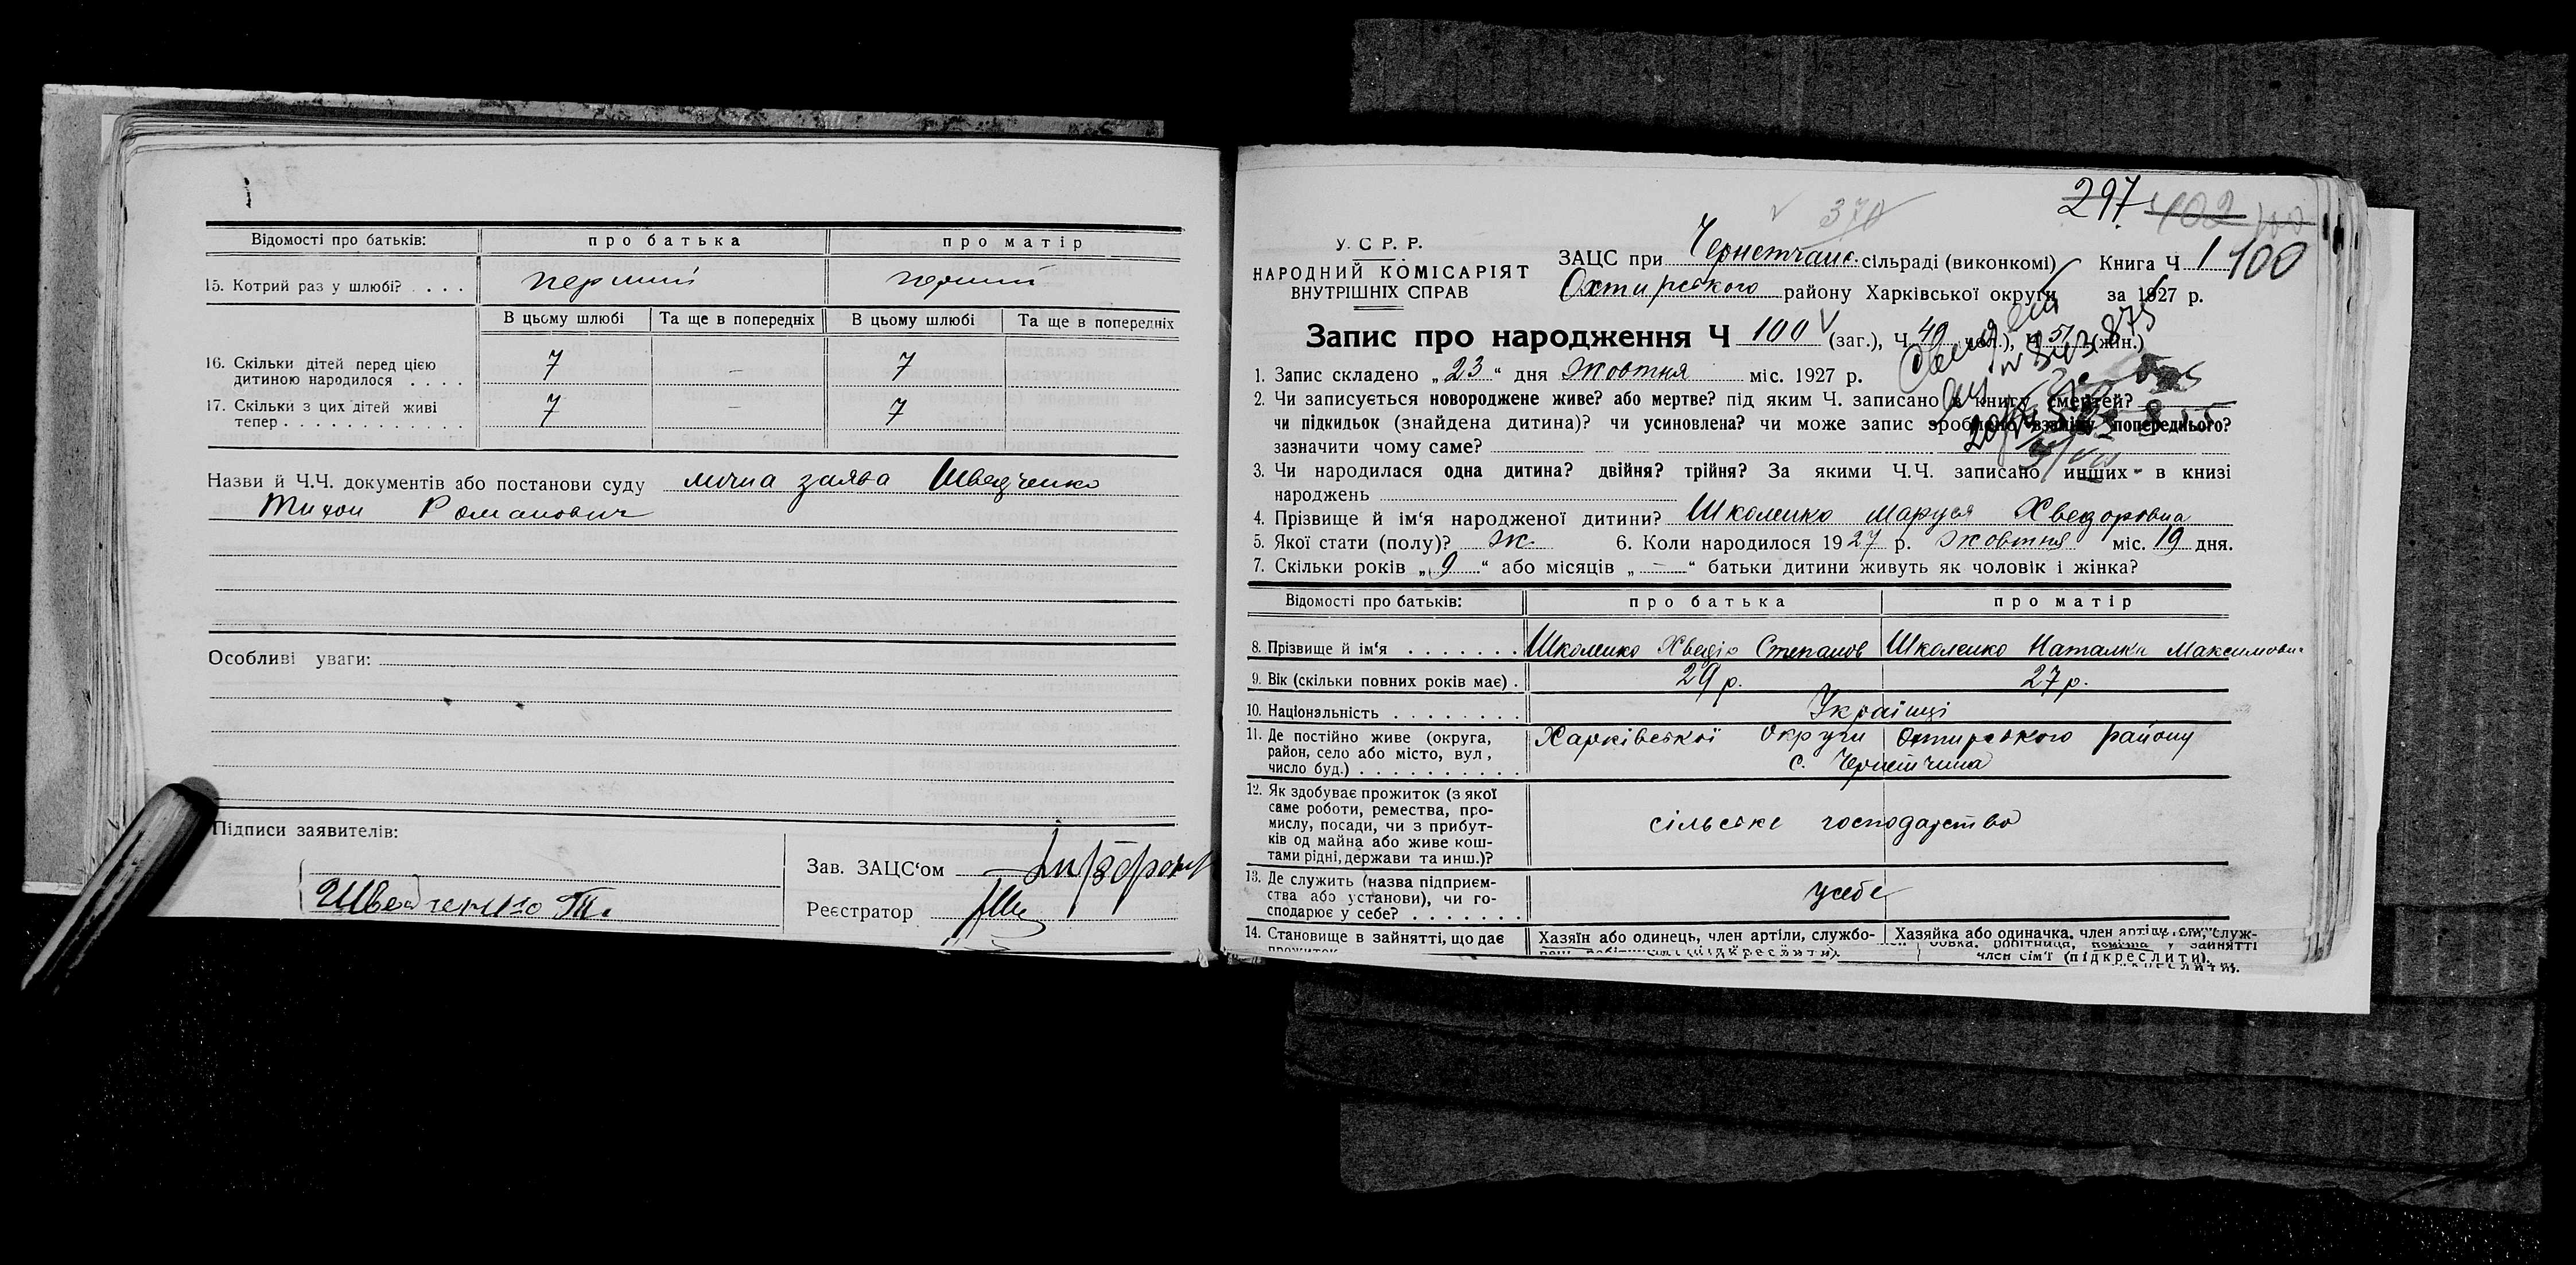 Відомості про батьків: про батька про матір
15. Котрий раз у шлюбі? . . . . перший перший
В цьому шлюбі Та ще в попередніх В цьому шлюбі Та ще в попередніх
16. Скільки дітей перед цією
дитиною народилося . . . . 7 - 7
17. Скільки з цих дітей живі
тепер . . . . . . . . . . . . . 7 - 7
Назви й Ч.Ч. документів або постанови суду лична заява Шведченко
Тихон Романович
Особливі уваги:
Підписи заявителів:
Шведченко Т.
Зав. ЗАЦС‘ом
Реєстратор
370
297 402 100
У. С. Р. Р.
НАРОДНИЙ КОМІСАРІЯТ
ВНУТРІШНІХ СПРАВ
ЗАЦС при Чернетчанс. сільраді (виконкомі) Книга Ч 1 100
Охтирського району Харківської округи за 1927 р.
Запис про народження Ч 100 (заг.), Ч 49 чол.), Ч 51 (жін.)
1. Запис складено „23“ дня Жовтня міс. 1927 р.
2. Чи записується новороджене живе? або мертве? під яким Ч. записано в книгу смертей?
чи підкидьок (знайдена дитина)? чи усиновлена? чи може запис зроблено взамін попереднього?
зазначити чому саме?
3. Чи народилася одна дитина? двійня? трійня? За якими Ч.Ч. записано инших - в книзі
народжень
4. Прізвище й ім‘я народженої дитини? Школенко Маруся Хведоровна
5. Якої стати (полу)? Ж. 6. Коли народилося 1927 р. Жовтня міс. 19 дня.
7. Скільки років „9“ або місяців „-“ батьки дитини живуть як чоловік і жінка?
Відомості про батьків: про батька про матір
8. Прізвище й ім‘я . . . . . . . Школенко Хведір Степанов Школенко Наталка Максимовн
9. Вік (скільки повних років має) . 29 р. 27 р.
10. Національність . . . . . . . . Українці
11. Де постійно живе (округа,
район, село або місто, вул,
число буд.) . . . . . . . . . . Харківської Округи Охтирського району
с. Чернетчина
12. Як здобуває прожиток (з якої
саме роботи, ремества, про-
мислу, посади, чи з прибут-
ків од майна або живе кош-
тами рідні, держави та инш.)? сільське господарство
13. Де служить (назва підприєм-
ства або установи), чи го-
сподарює у себе? . . . . . . . усебе
14. Становище в зайнятті, що дає Хазяїн або одинець, член артіли, службо- Хазяйка або одиначка, член артіли, служ-
прожиток
член сім‘ї (підкреслити).